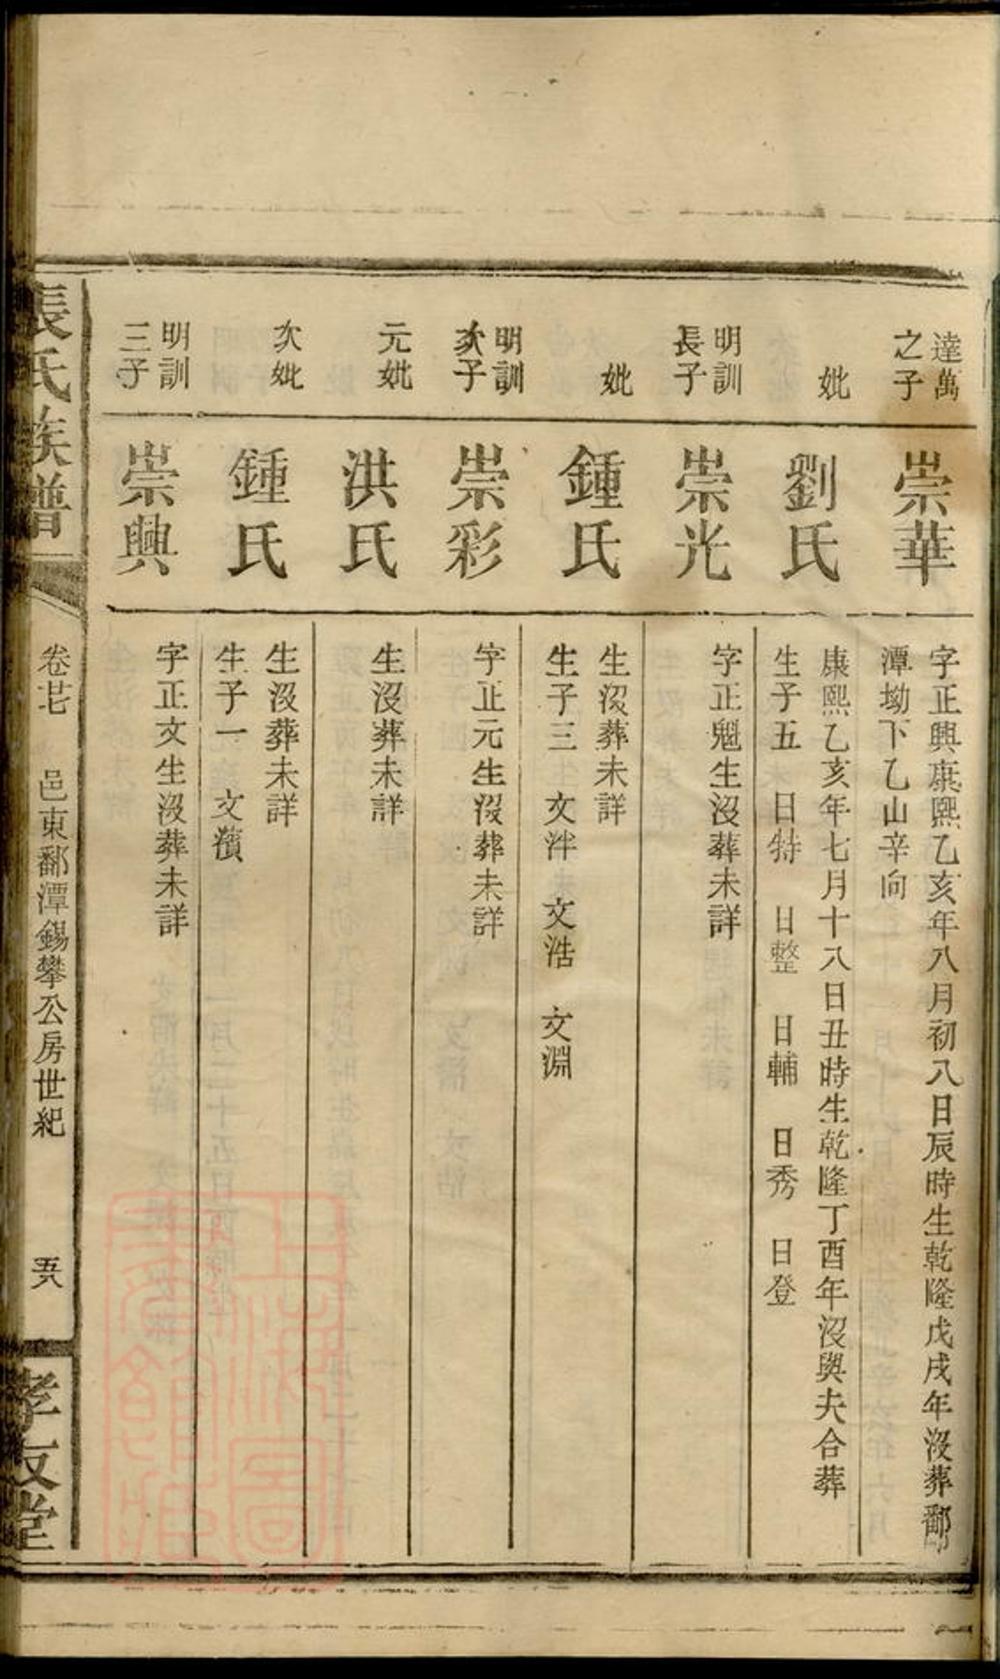 達萬
之子
崇華
字正興康熙乙亥年八月初八日辰時生乾隆戊戌年沒葬鄱
潭坳下乙山辛向
妣
劉氏
康熙乙亥年七月十八日丑時生乾隆丁酉年沒與夫合葬
生子五 日特 日整 日輔 日秀 日登
明訓
長子
崇光
字正魁生沒葬未詳
妣
鍾氏
生沒葬未詳
生子三 文泮 文浩 文淵
明訓
次子
崇彩
字正元生沒葬未詳
元妣
洪氏
生沒葬未詳
次妣
鍾氏
生沒葬未詳
生子一 文濱
明訓
三子
崇興
字正文生沒葬未詳
張氏族譜
卷廿七 邑東鄱潭錫攀公房世紀 五八
孝友堂